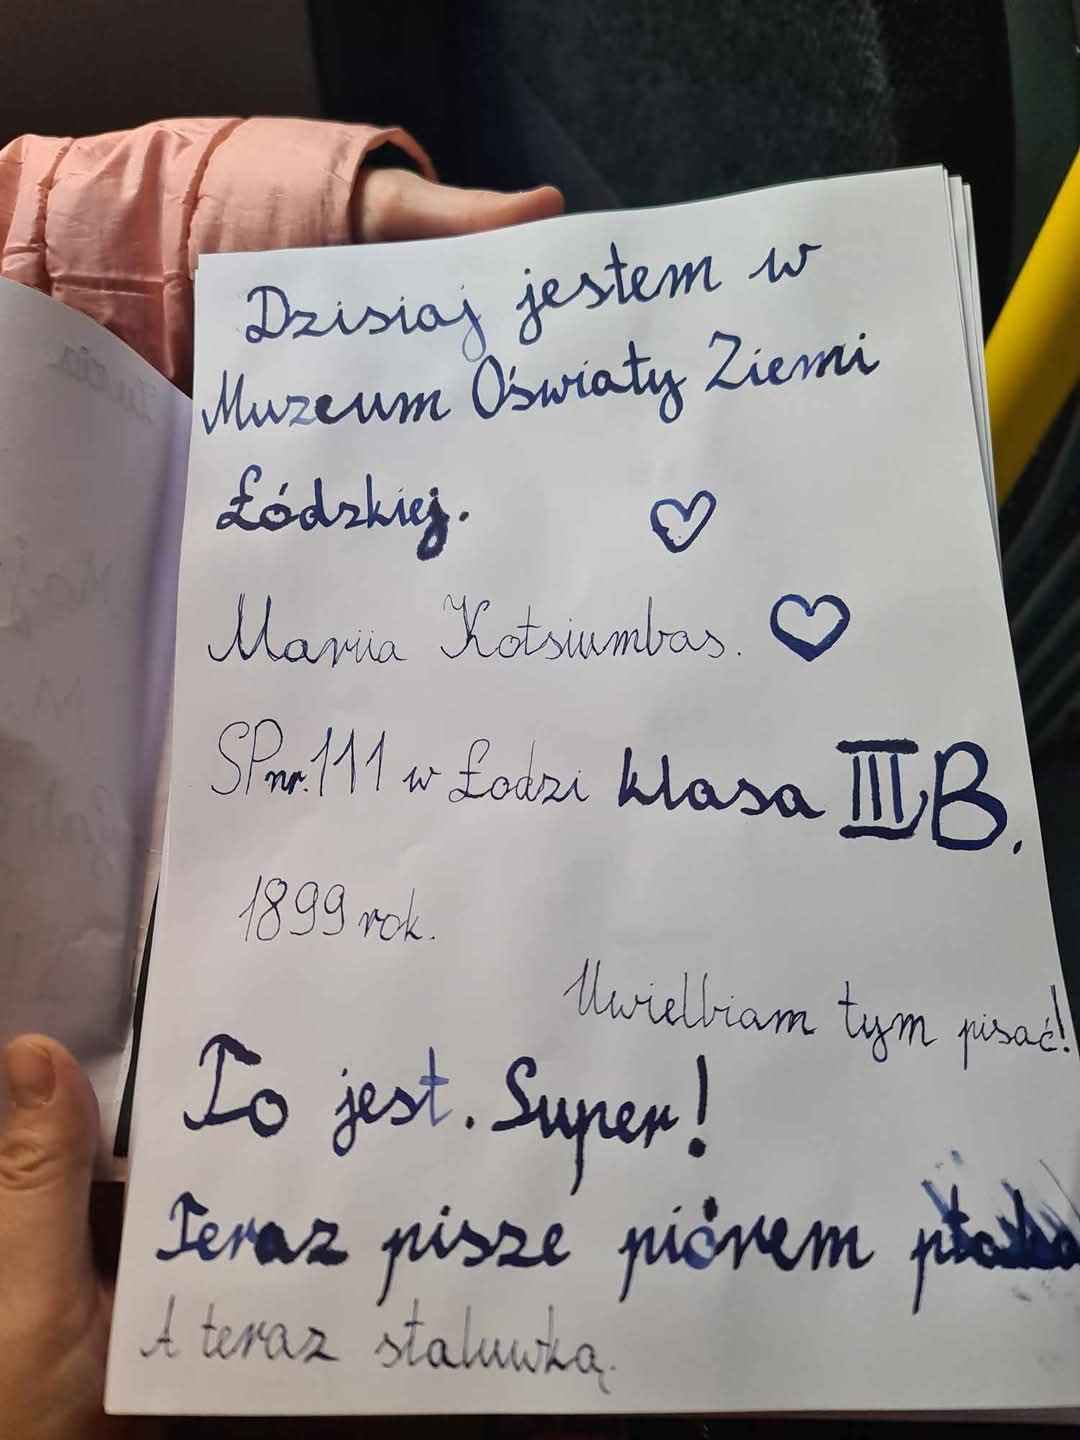 Dzisiaj jestem w
Muzeum Oświaty Ziemi
Łódzkiej.
Mariia Kotsiumbas.
SP nr. 111 w Łodzi klasa III B.
1899 rok.
Uwielbiam tym pisać!
To jest. Super!
Teraz pisze piórem
A teraz staluwką.